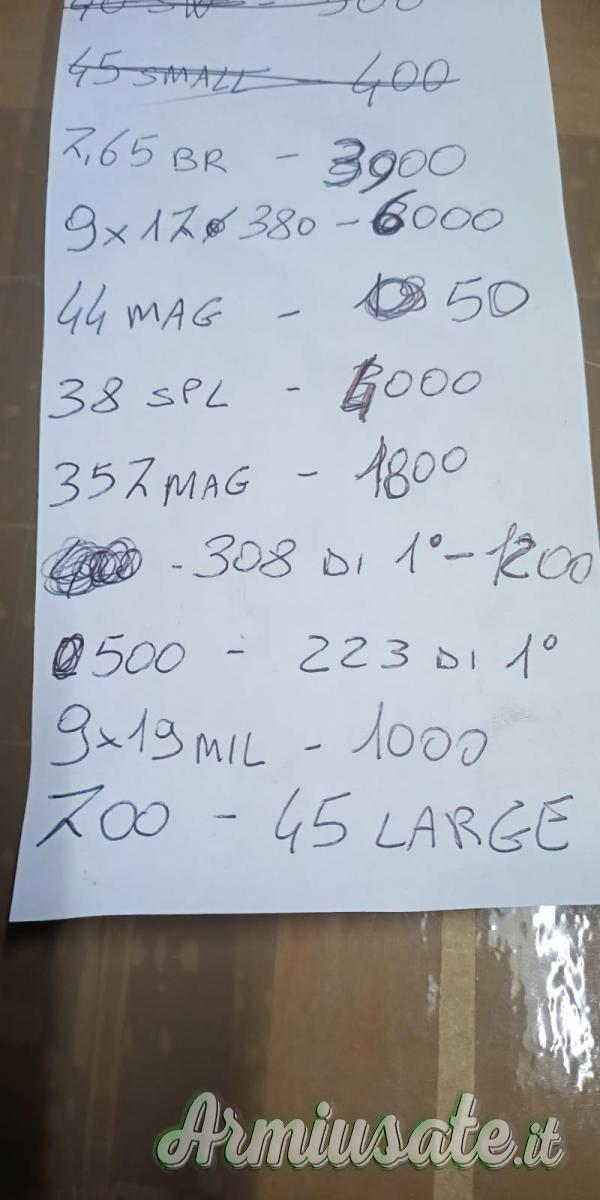 40 SW - 300
45 SMALL - 400
7,65 BR - 3900
9x17 380 - 6000
44 MAG - 50
38 SPL - 4000
357 MAG - 1800
- 308 DI 1° - 1200
500 - 223 DI 1°
9x19 MIL - 1000
700 - 45 LARGE
Armiusate.it